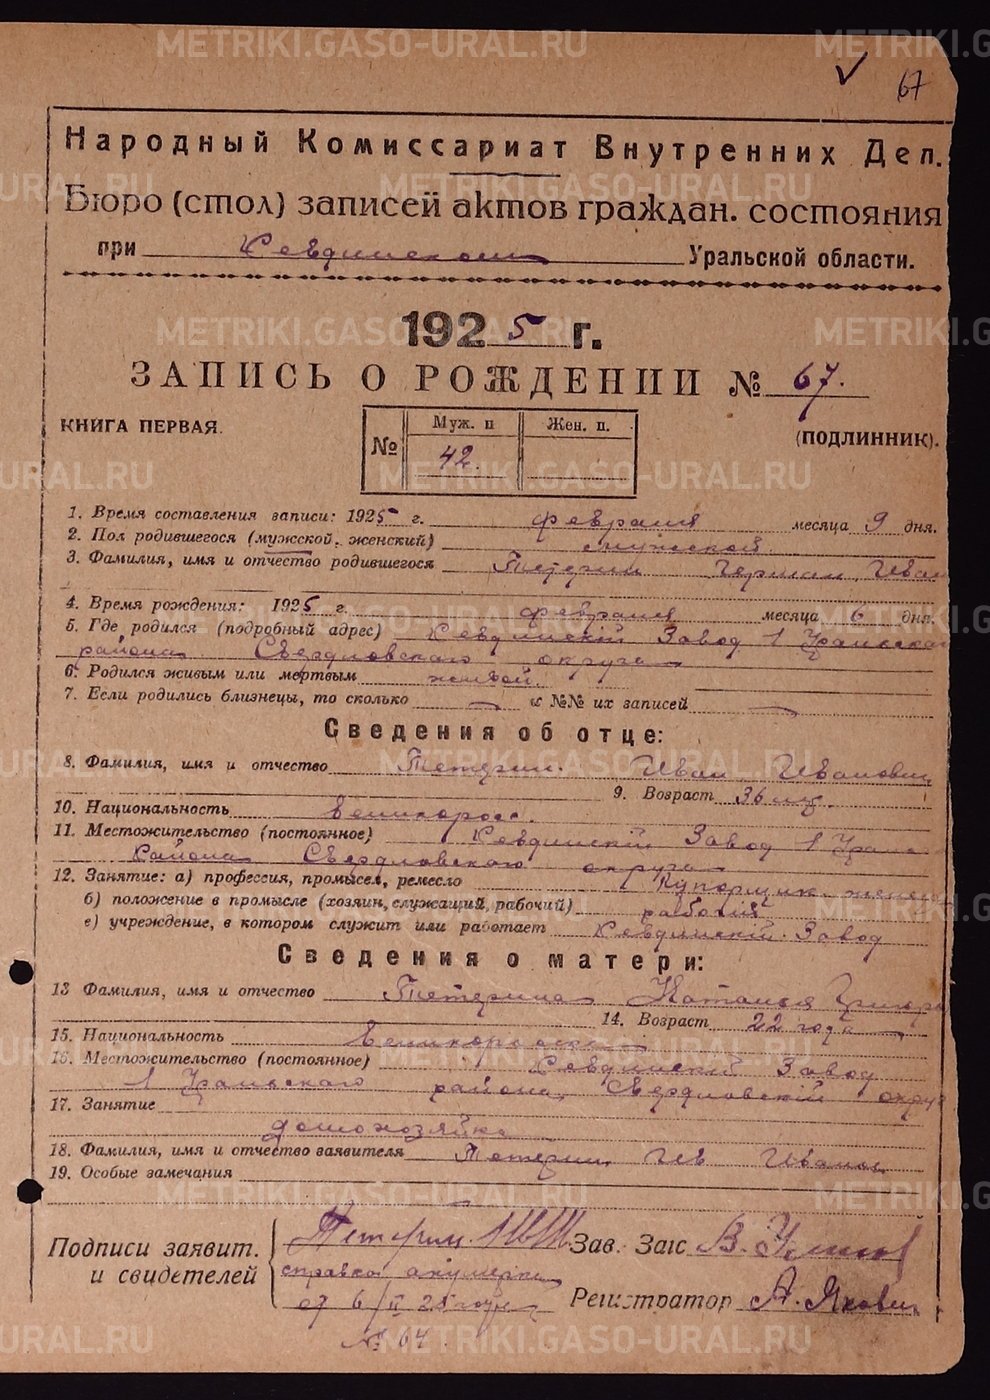 67
Народный Комиссариат Внутренних Дел.
Бюро (стол) записей актов граждан. состояния
при Ревдинском Уральской области.
1925 г.
ЗАПИСЬ О РОЖДЕНИИ № 67.
КНИГА ПЕРВАЯ.
№ Муж. п Жен. п.
42.
(ПОДЛИННИК).
1. Время составления записи: 1925 г. февраля месяца 9 дня.
2. Пол родившегося (мужской, женский) мужской.
3. Фамилия, имя и отчество родившегося Тетерин Герман Иван
4. Время рождения: 1925 г. февраля месяца 6 дня.
5. Где родился (подробный адрес) Ревдинскій Завод 1 Уральскаго
района Свердловскаго округа
6. Родился живым или мертвым живой.
7. Если родились близнецы, то сколько — и №№ их записей —
Сведения об отце:
8. Фамилия, имя и отчество Тетерин Иван Иванович
9. Возраст 36 лет.
10. Национальность великоросс.
11. Местожительство (постоянное) Ревдинскій Завод 1 Урал
района Свердловскаго округа
12. Занятие: а) профессия, промысел, ремесло
б) положение в промысле (хозяин, служащий, рабочий) рабочій
в) учреждение, в котором служит или работает Ревдинскій Завод
Сведения о матери:
13 Фамилия, имя и отчество Тетерина Наталья Григор
14. Возраст 22 года
15. Национальность великоросска
16. Местожительство (постоянное) Ревдинскій Завод
1 Уральскаго района, Свердловскій округ
17. Занятие
домохозяйка
18. Фамилия, имя и отчество заявителя Тетерин Ив Иванов
19. Особые замечания
Подписи заявит. и свидетелей
Тетерин
справка акушерки
от 6/II 25 года
№ 64
Зав. Загс В.
Регистратор А. Якович
METRIKI.GASO-URAL.RU